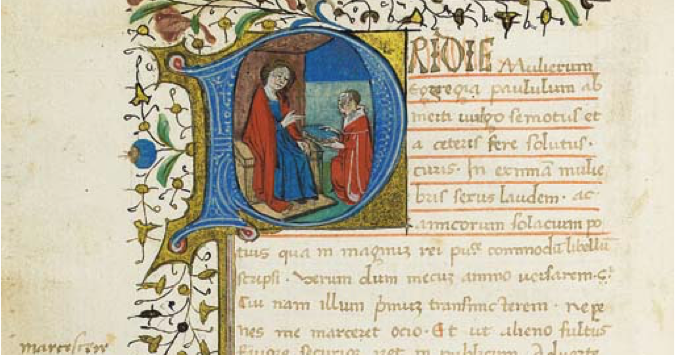 PRIDIE Mulierum
Egregia paululum ab
inerti vulgo semotus et
a ceteris fere solutus.
curis. In eximiam mulie
bris sexus laudem. ac
amicorum solacium po
tius quam in magnum rei commodum libellum
scripsi. Verum dum mecum animo versarem.
Cui nam illum primum transmicterem. ne pe
nes me marceret ocio. Et ut alieno fultus
favore securior in publicum
marcescere